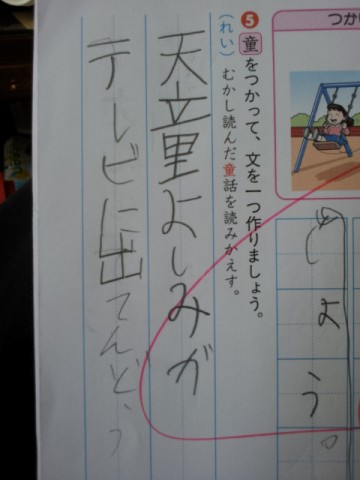 つか
しょう。
5 童をつかって、文を一つ作りましょう。
(れい) むかし読んだ童話を読みかえす。
天童よしみが
テレビに出てんどう